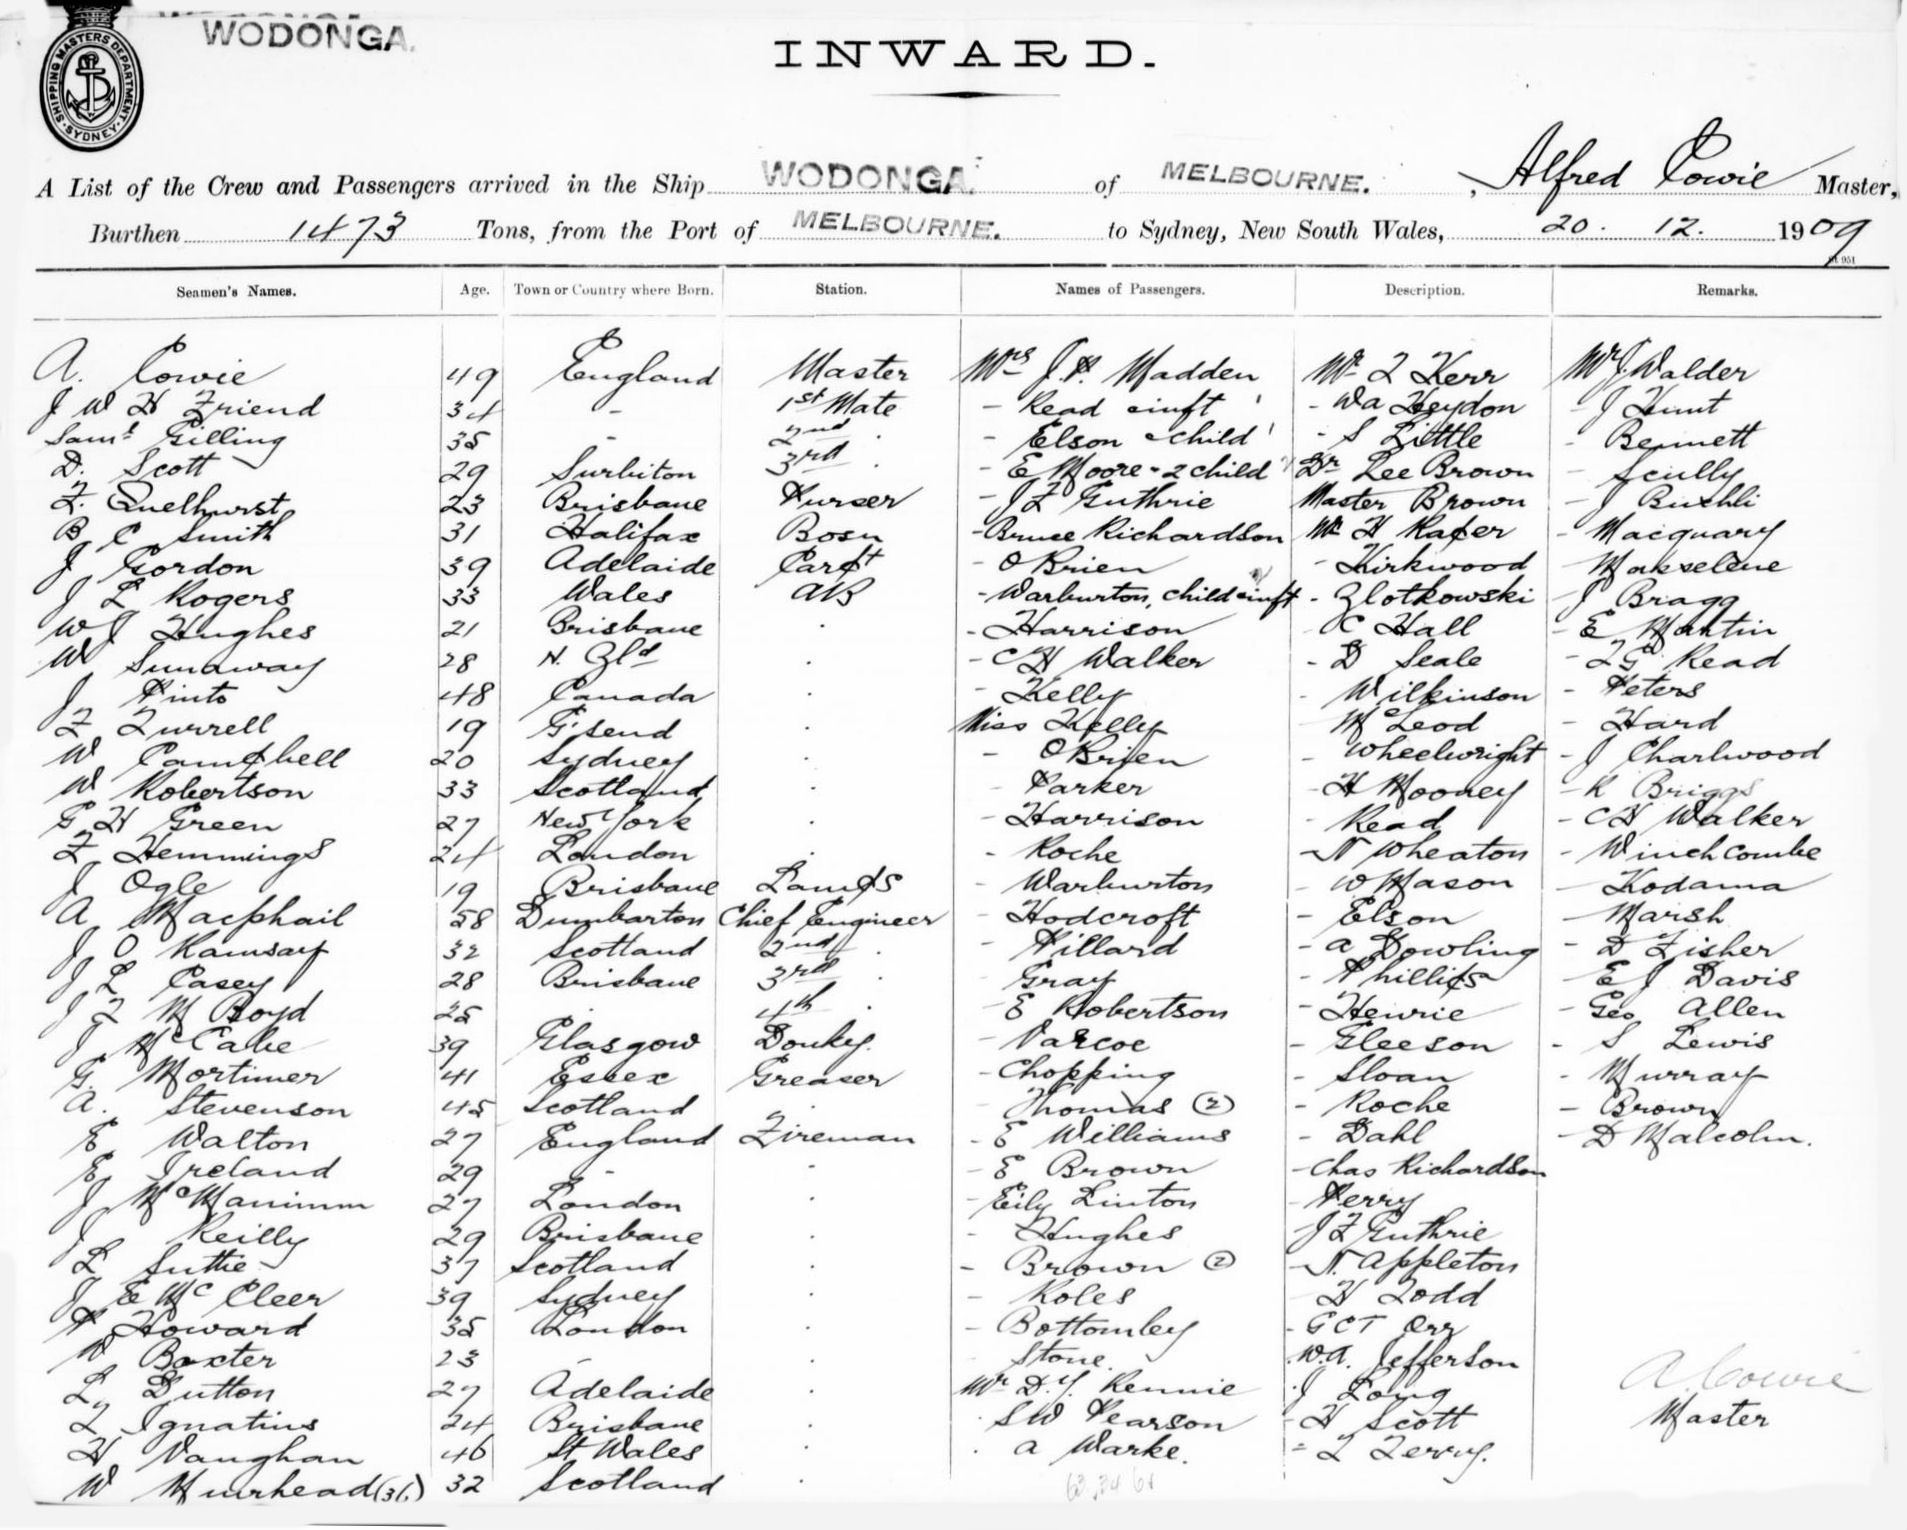 WODONGA.
SHIPPING MASTERS DEPARTMENT. SYDNEY
INWARD.
A List of the Crew and Passengers arrived in the Ship WODONGA. of MELBOURNE. , Alfred Cowie Master,
Burthen 1473 Tons, from the Port of MELBOURNE. to Sydney, New South Wales, 20. 12. 1909
St 951
Seamen's Names. Age. Town or Country where Born. Station. Names of Passengers. Description. Remarks.
A. Cowie 49 England Master Mrs J.P. Madden Mr F Kerr Mr J. Walder
J W H Friend 34 - 1st Mate - Read & inft - W A Heydon - J Hunt
Saml Gilling 35 - 2nd . - Elson & child - S Little - Bennett
D. Scott 29 Surbiton 3rd . - E Moore - 2 child Dr Lee Brown - Scully
F. Quelhurst 23 Brisbane Purser - J F Guthrie Master Brown - J Bushli
B C Smith 31 Halifax Bosn - Bruce Richardson Mr H Raper - Macquary
J Gordon 39 Adelaide Carpt - O Brien - Kirkwood - Makselene
J L Rogers 33 Wales AB - Warburton, child & inft - Zlotkowski - J Bragg
W J Hughes 21 Brisbane . - Harrison - C Hall - E Martin
W Sunaway 28 N. Zld . - C H Walker - D Seale - F G Read
J Pinto 48 Canada . - Kelly - Wilkinson - Peters
F Turrell 19 G'send . Miss Kelly - McLeod - Hard
W Campbell 20 Sydney . - O Brien - Wheelwright - J Charlwood
W Robertson 33 Scotland . - Parker - H Mooney - R Briggs
G H Green 27 New York . - Harrison - Read - C H Walker
F Hemmings 24 London . - Roche - N Wheaton - Winchcombe
J Ogle 19 Brisbane Lamps - Warburton - W Mason - Kodama
A Macphail 58 Dumbarton Chief Engineer - Hodcroft - Elson - Marsh
J O Ramsay 32 Scotland 2nd . - Pillard - A Dowling - D Fisher
J L Casey 28 Brisbane 3rd . - Gray - Phillips - E J Davis
J F M Boyd 25 . 4th . - E Robertson - Henrie - Geo Allen
J McCabe 39 Glasgow Donkey. - Varcoe - Gleeson - S Lewis
G. Mortimer 41 Essex Greaser - Chopping - Sloan - Murray
A. Stevenson 45 Scotland . - Thomas (2) - Roche - Brown
E Walton 27 England Fireman - E Williams - Dahl - D Malcolm.
E Ireland 29 - . - E Brown - Chas Richardson
J McManimm 27 London . - Eily Linton - Perry
J Reilly 29 Brisbane . - Hughes - J F Guthrie
L Suttie 37 Scotland . - Brown (2) - N. Appleton
J E McCleer 39 Sydney . - Roles - H Todd
P Howard 35 London . - Bottomley - G C T Orr
W Baxter 23 - . - Stone. - W.A. Jefferson
L Dutton 27 Adelaide . Mr D.Y. Rennie - J Long A. Cowie
F Ignatius 24 Brisbane . - S W Pearson - H Scott Master
H Vaughan 46 St Wales . - A Warke. - L Terry.
W Muirhead (36) 32 Scotland .